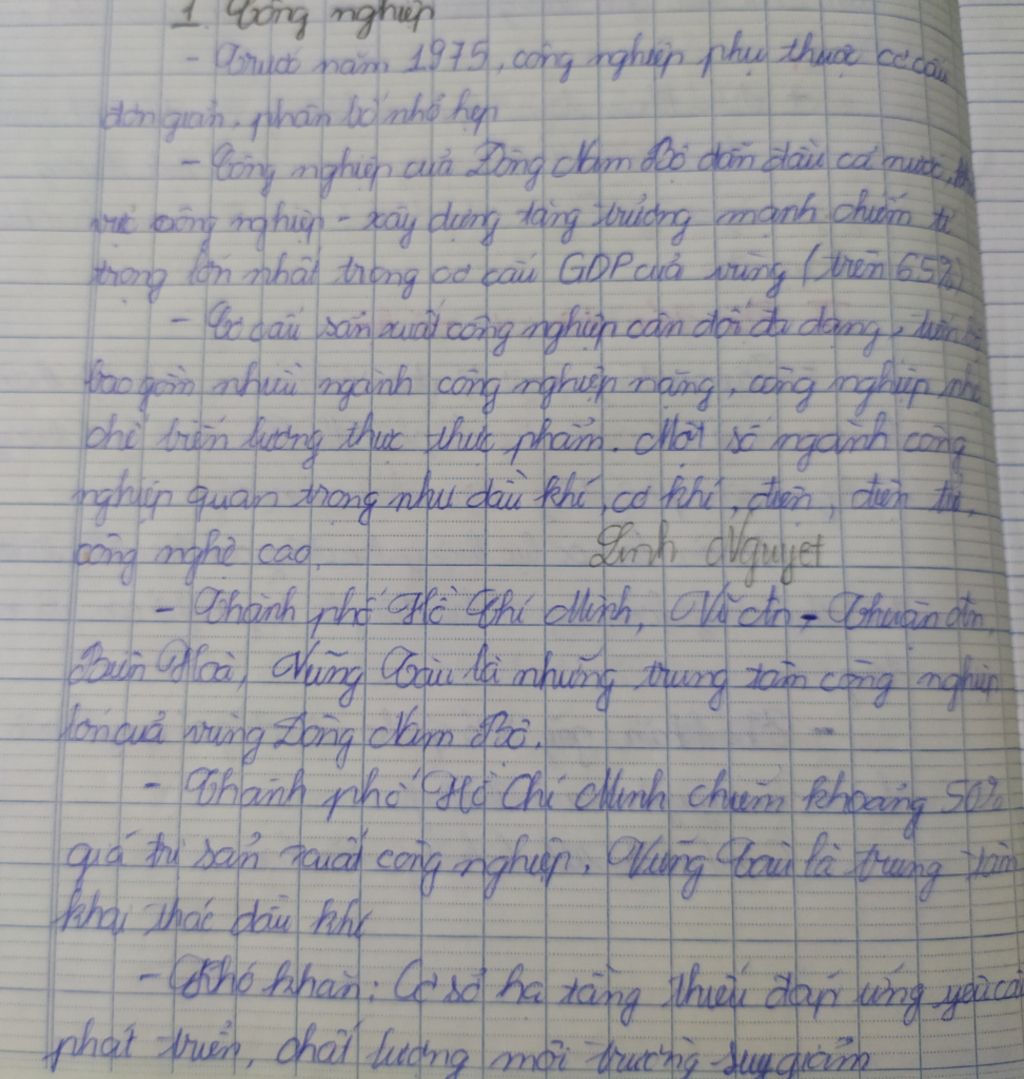 1. Công nghiệp
- Trước năm 1975, công nghiệp phụ thuộc cơ cấu
đơn giản, phân bố nhỏ hẹp
- Công nghiệp của Đông Nam Bộ dẫn đầu cả nước,
vực công nghiệp - xây dựng tăng trưởng mạnh chiếm tỉ
trọng lớn nhất trong cơ cấu GDP của vùng (trên 65%)
- Cơ cấu sản xuất công nghiệp cân đối đa dạng,
bao gồm nhiều ngành công nghiệp nặng, công nghiệp nhẹ
chế biến lương thực thực phẩm. Một số ngành công
nghiệp quan trọng như dầu khí, cơ khí, điện, điện tử,
công nghệ cao. Linh Nguyet
- Thành phố Hồ Chí Minh, Dĩ An - Thuận An,
Biên Hoà, Vũng Tàu là những trung tâm công nghiệp
lớn của vùng Đông Nam Bộ.
- Thành phố Hồ Chí Minh chiếm khoảng 50%
giá trị sản xuất công nghiệp. Vũng Tàu là trung tâm
khai thác dầu khí
- Khó khăn: Cơ sở hạ tầng thiếu đáp ứng yêu cầ
phát triển, chất lượng môi trường suy giảm